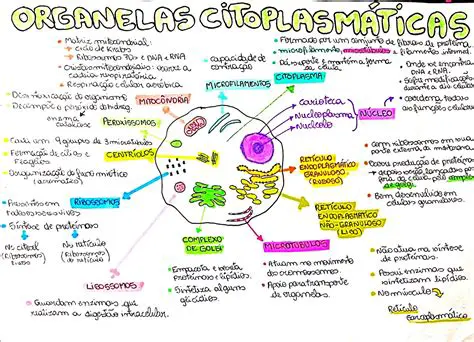 ORGANELAS CITOPLASMÁTICAS
• Matriz mitocondrial:
• Ciclo de Krebs
• Ribossomos 70s e DNA e RNA
• Respiração celular aeróbica
MITOCÔNDRIA
• capacidade de
contração
MICROFILAMENTOS
• Formado por um conjunto de fibras de proteína,
microfilamento, microtúbulos e filamento intermed.
• Dá suporte e mantém a forma
da célula
CITOPLASMA
• Onde se encontra
o DNA e RNA
• Sofre modificação
durante a divisão celular
• coordena todas as
funções celulares
• carioteca
• Nucleoplasma
• Nucléolo
NÚCLEO
• Desintoxicação do organismo
• Decompõe o peróxido de hidrog.
enzima
catalase
PEROXISSOMOS
• Cada um 9 grupos de 3 microtúbulos
• Formação de cílios e
flagelos
• Organização do fuso mitótico
(acromático)
CENTRÍOLOS
RETÍCULO
ENDOPLASMÁTICO
GRANULOSO
(RUGOSO)
• com ribossomos em sua
parte externa da membrana
• Bem desenvolvido em
células glandulares
RIBOSSOMOS
• Síntese de proteínas
No citosol
(Ribossomos)
livres
No retículo
(Ribossomos)
do retículo
RETÍCULO
ENDOPLASMÁTICO
NÃO-GRANULOSO
(LISO)
COMPLEXO
DE GOLGI
• Empacota e secreta
proteínas e lipídios.
• Sintetiza alguns
glicídios
MICROTÚBULOS
• Atuam no movimento
do cromossomos
• Apoio para transporte
de organelas.
• Não atua na síntese
de proteínas.
• Possui enzimas que
sintetizam lipídios.
• No músculo
Retículo
Sarcoplasmático
LISOSSOMOS
• Guardam enzimas que
realizam a digestão intracelular.